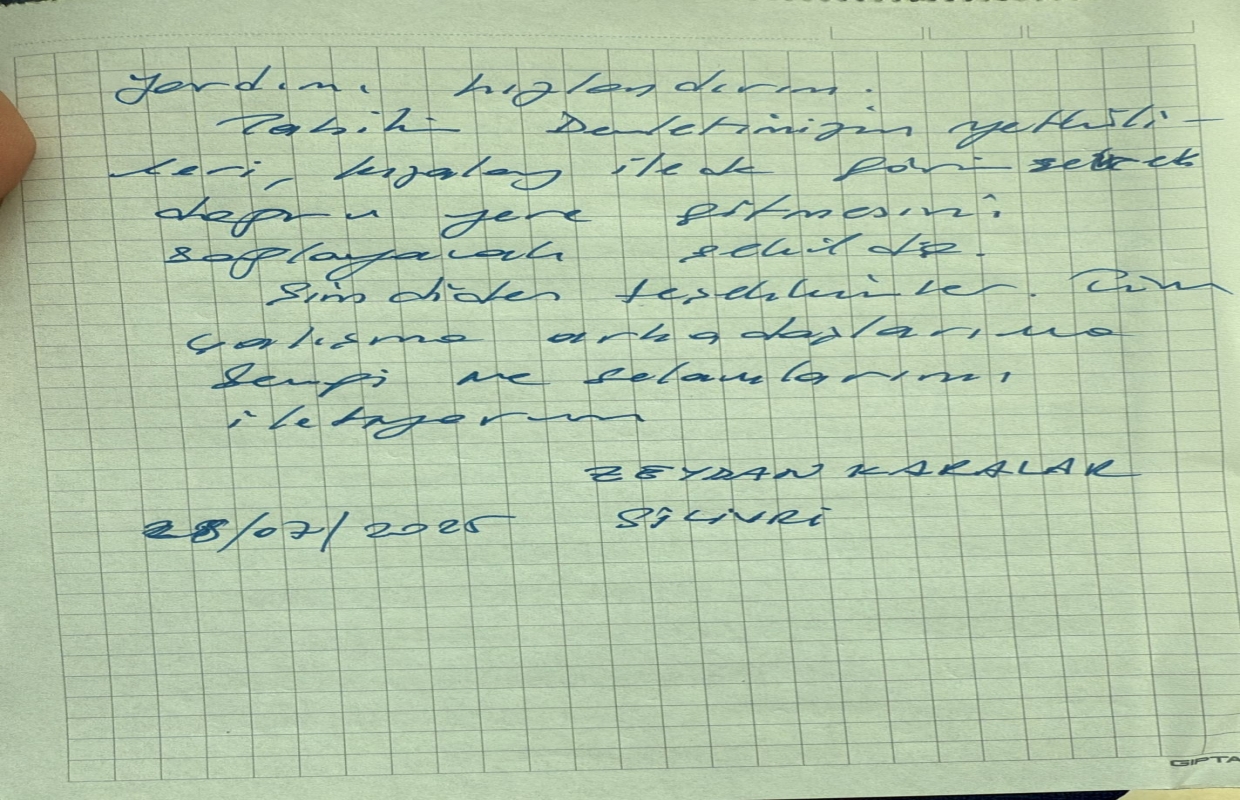 yardımı hızlandırın.
Tabiki Devletimizin yetkili-
leri, kızılay ile de görüşerek
doğru yere gitmesini
sağlayacak şekilde.
Şimdiden teşekkürler. Tüm
çalışma arkadaşlarıma
Sevgi ve selamlarımı
iletiyorum
ZEYDAN KARALAR
28/07/2025 SİLİVRİ
GIPTA